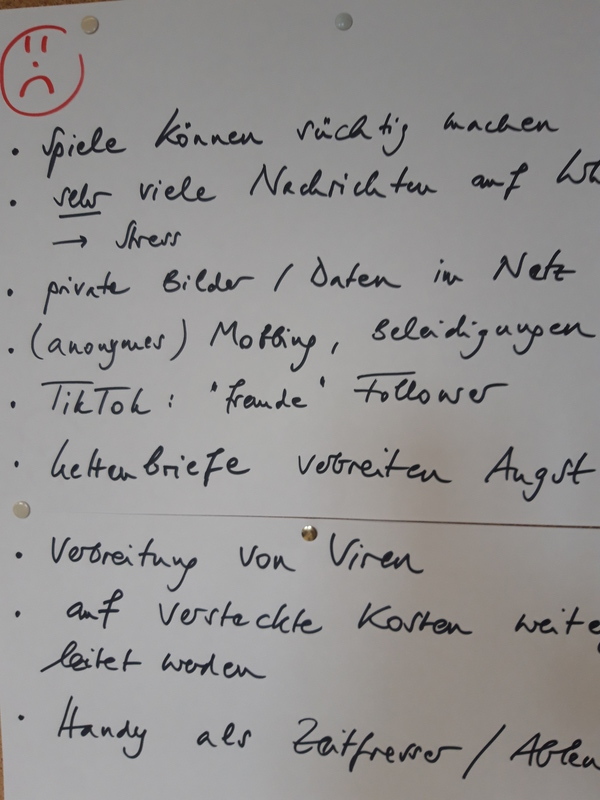 • Spiele können süchtig machen
• sehr viele Nachrichten auf
→ Stress
• private Bilder / Daten im Netz
• (anonymes) Mobbing, Beleidigungen
• TikTok: "fremde" Follower
• Kettenbriefe verbreiten Angst
• Verbreitung von Viren
• auf versteckte Kosten weite
leitet werden
• Handy als Zeitfresser / Ablen